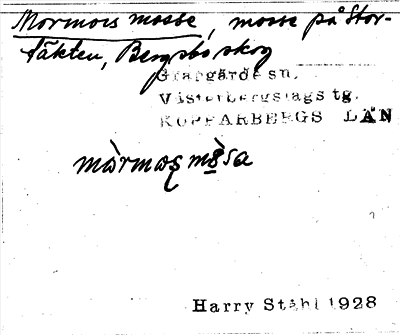 Mormors mosse, mosse på Stor-
täkten, Bergsbo skog
Grangärde sn.
Västerbergslags tg.
KOPPARBERGS LÄN
mòrmoṣ mòsa
Harry Ståhl 1928